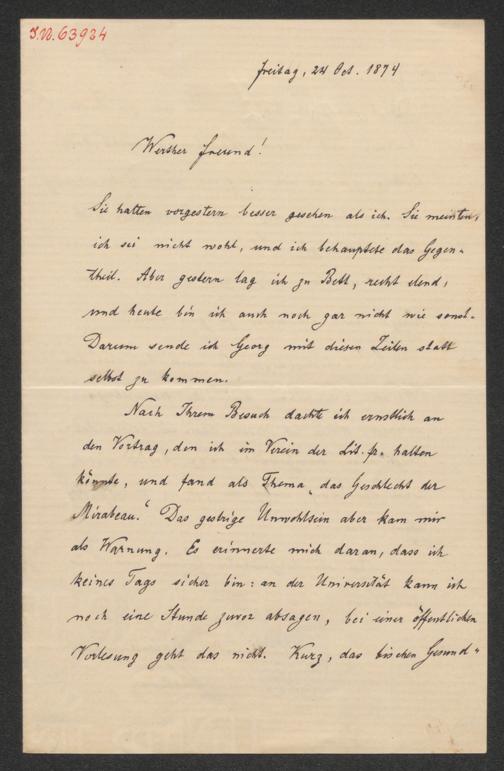 I.N. 63934
Freitag, 24 Oct. 1874
Werther Freund!
Sie hatten vorgestern besser gesehen als ich. Sie meinten,
ich sei nicht wohl, und ich behauptete das Gegen-
theil. Aber gestern lag ich zu Bett, recht elend,
und heute bin ich auch noch gar nicht wie sonst.
Darum sende ich Georg mit diesen Zeilen statt
selbst zu kommen.
Nach Ihrem Besuch dachte ich ernstlich an
den Vortrag, den ich im Verein der Lit. fr. halten
könnte, und fand als Thema „das Geschlecht der
Mirabeau." Das gestrige Unwohlsein aber kam mir
als Warnung. Es erinnerte mich daran, dass ich
keines Tags sicher bin: an der Universität kann ich
noch eine Stunde zuvor absagen, bei einer öffentlichen
Vorlesung geht das nicht. Kurz, das bischen Gesund-